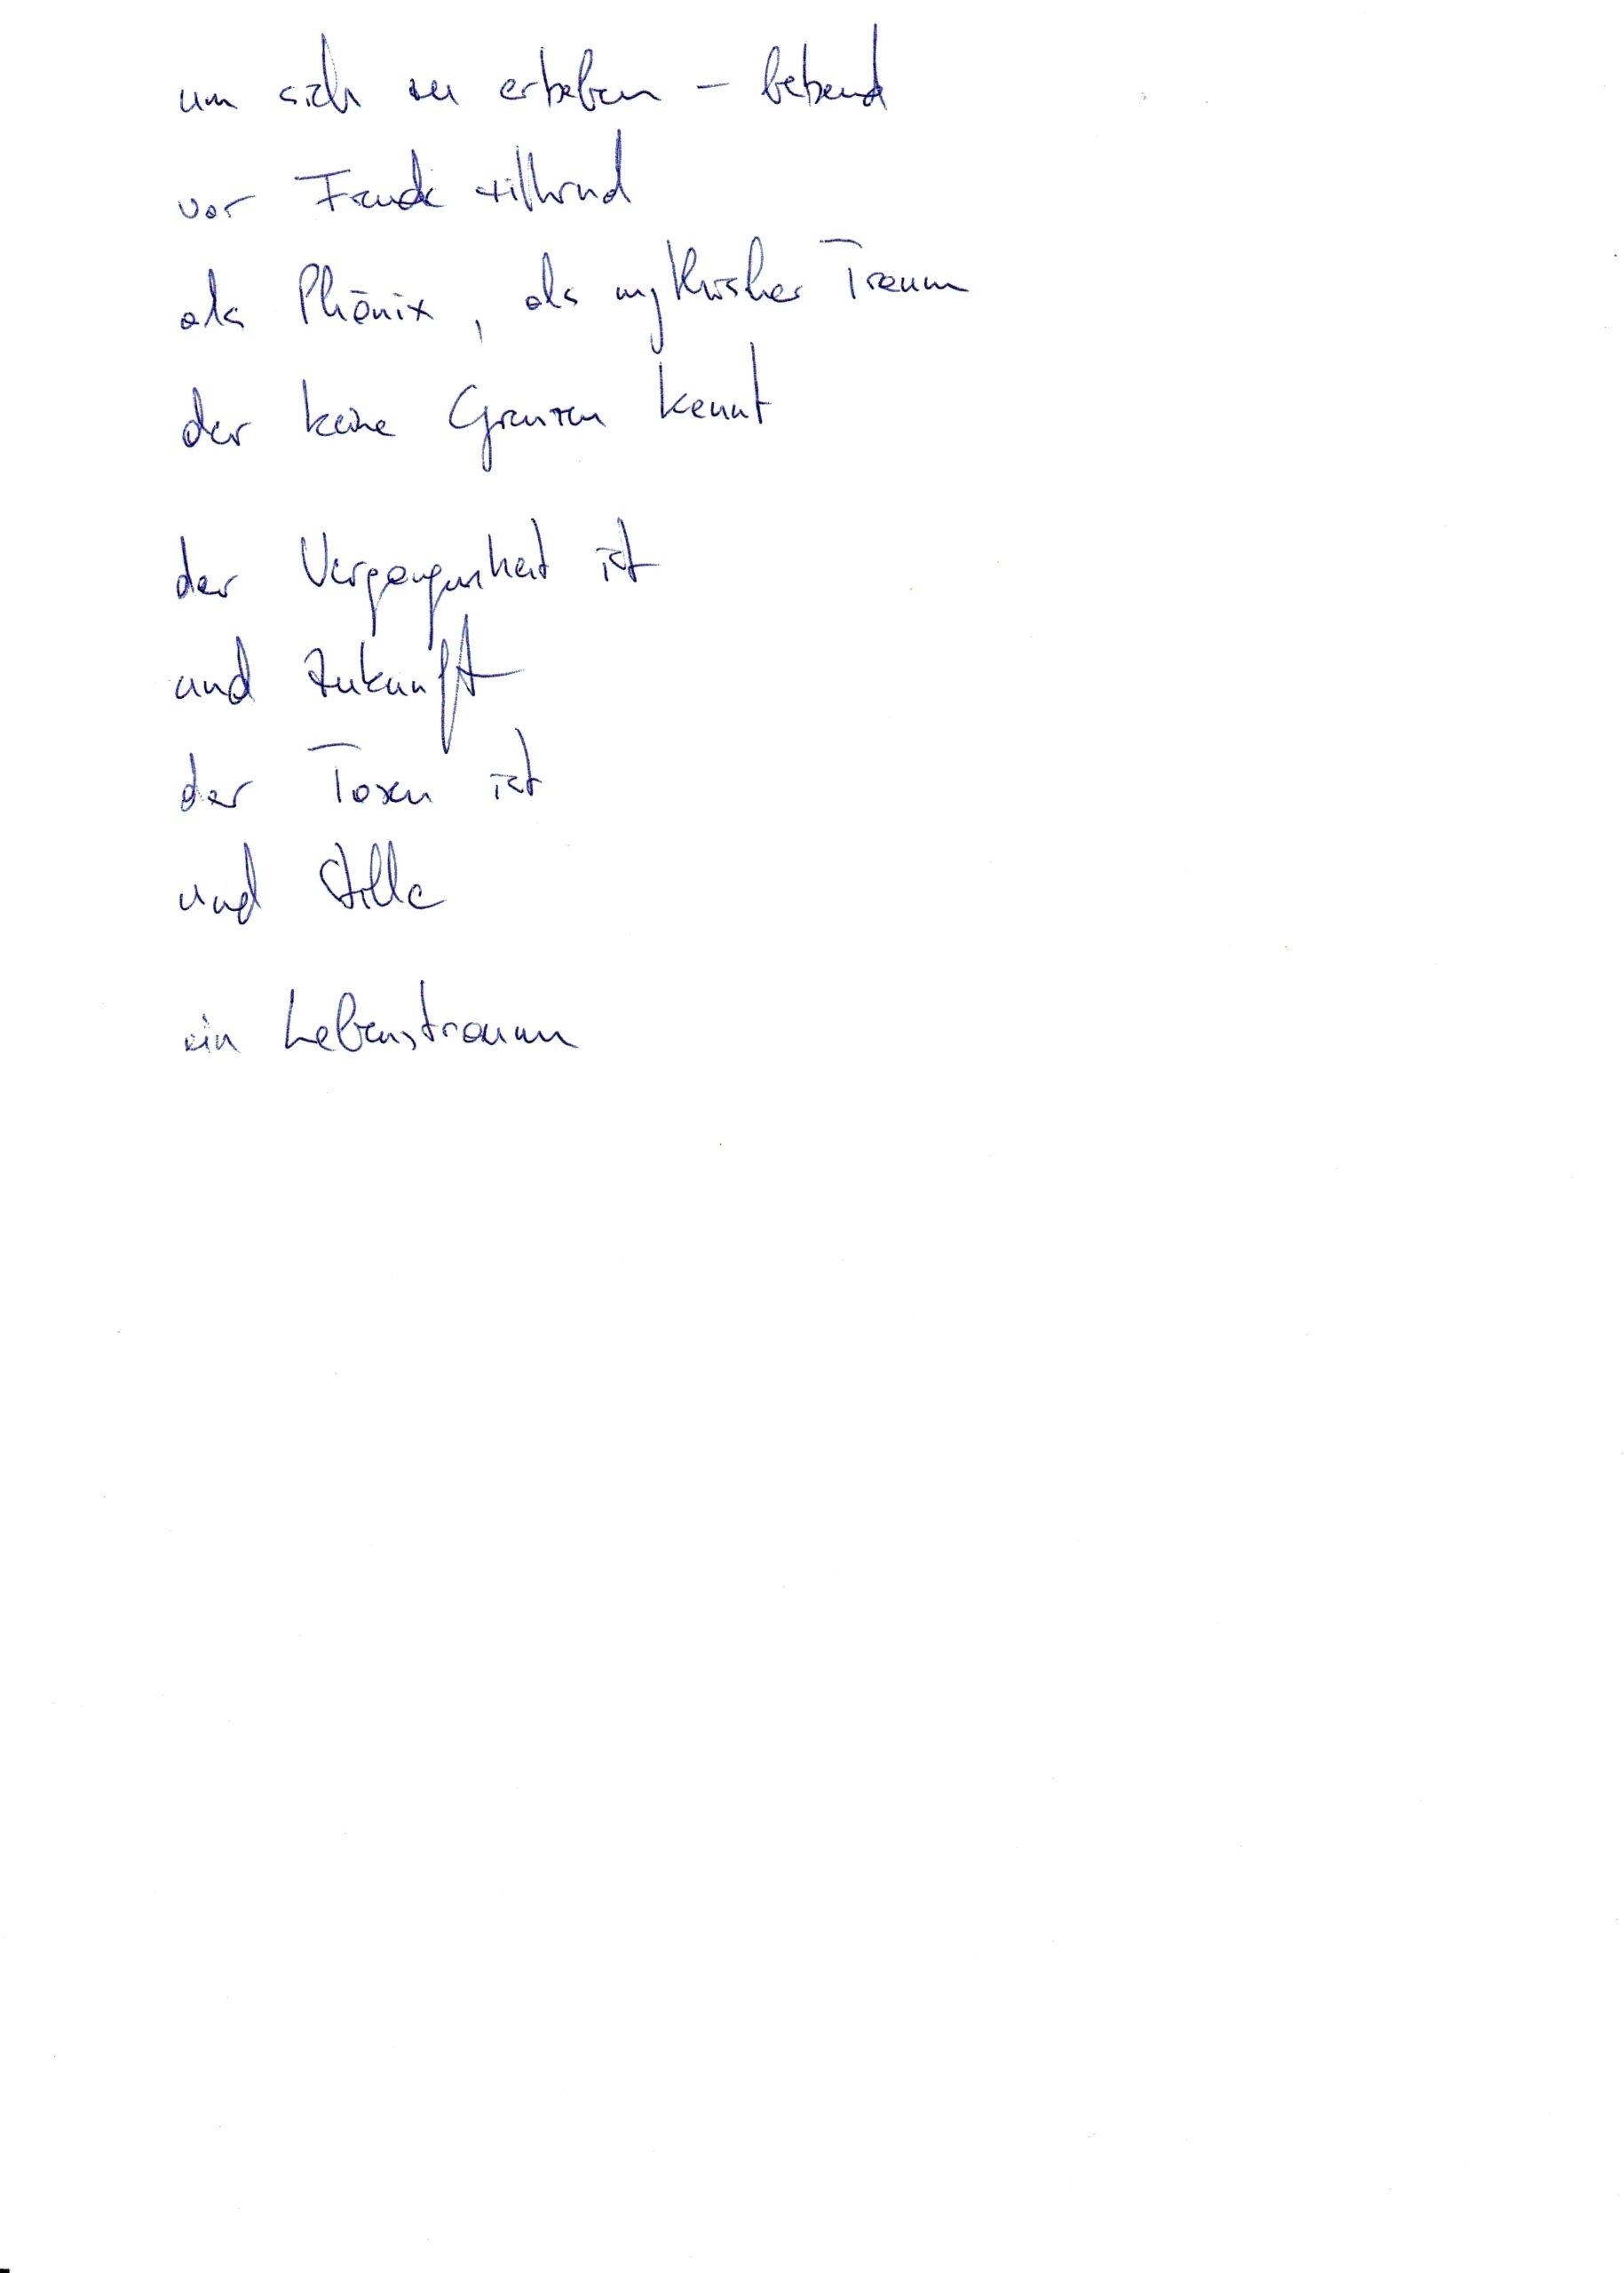 um sich zu erheben – bebend
vor Freude zitternd
als Phönix, als mythischer Traum
der keine Grenzen kennt
der Vergangenheit ist
und Zukunft
der Tosen ist
und Stille
ein Lebenstraum